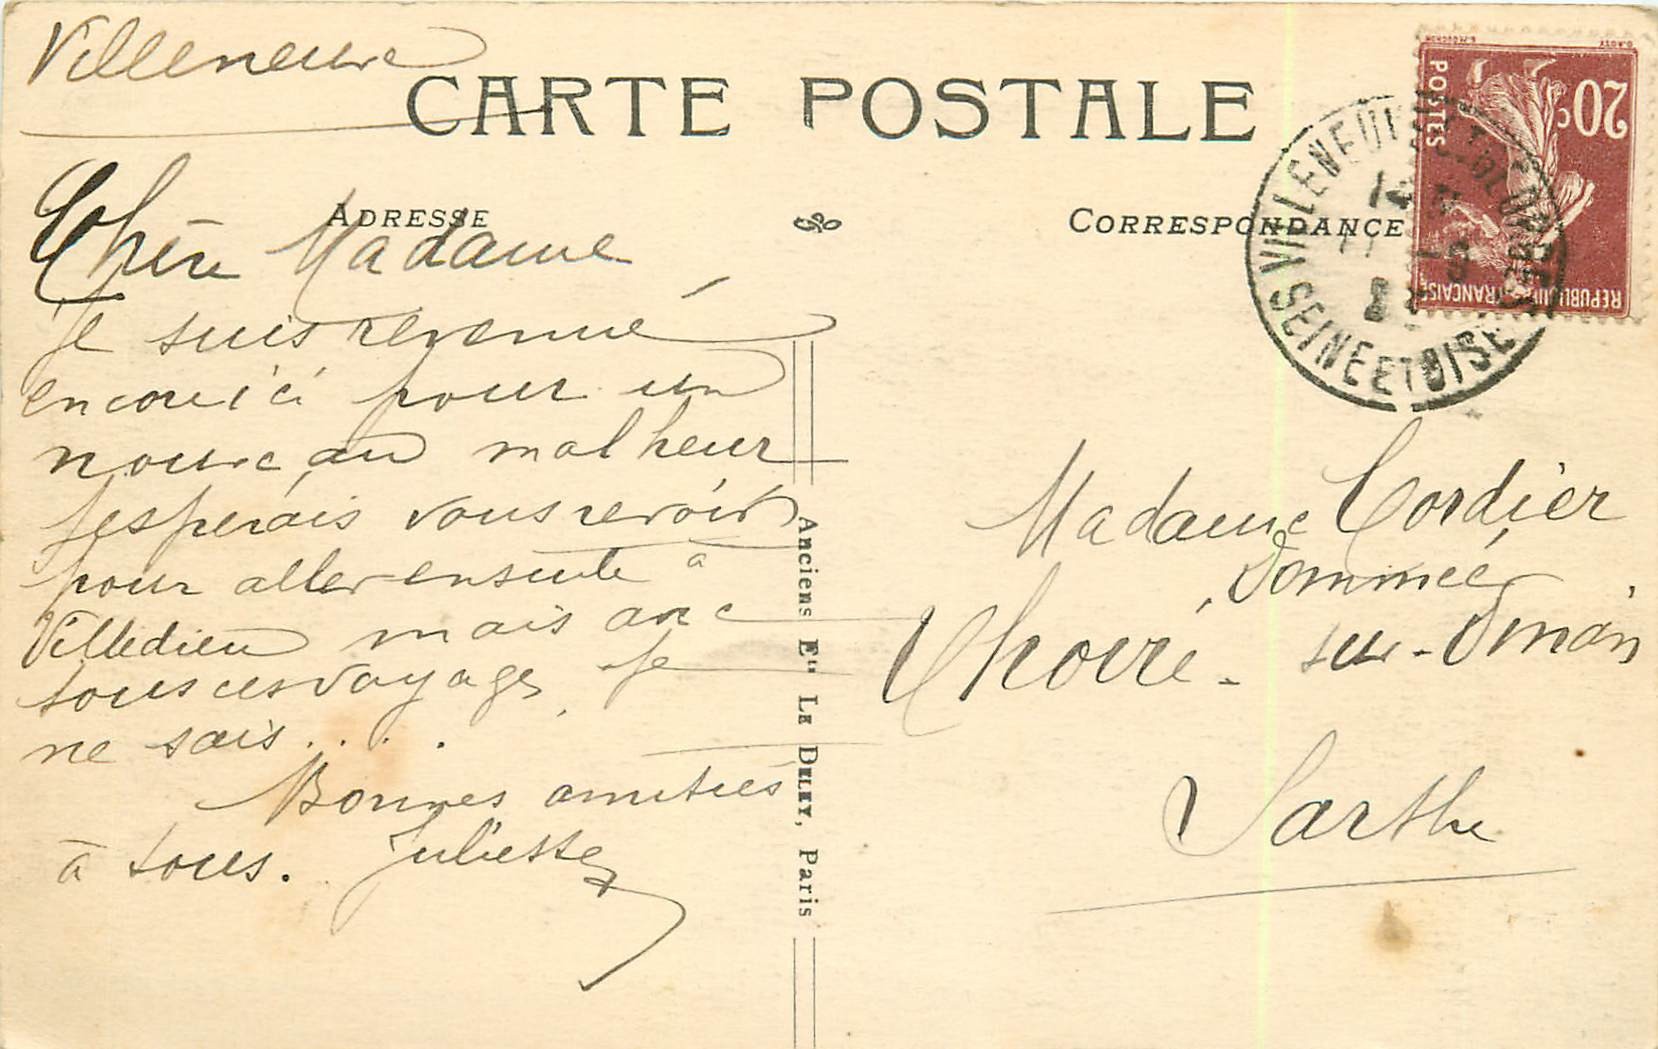 Villeneuve
CARTE POSTALE
ADRESSE
CORRESPONDANCE
Chère Madame
Je suis revenue
encore ici pour un
nouveau malheur
J'espérais vous revoir
pour aller ensuite à
Villedieu mais avec
tous ces voyages je
ne sais....
Bonnes amitiés
à tous. Juliette
Anciens Ets LE DELEY, Paris
20c
POSTES
REPUBLIQUE FRANÇAISE
VILLENEUVE
SEINE ET OISE
Madame Cordier
Domméé
Thoiré - sur - Dinan
Sarthe